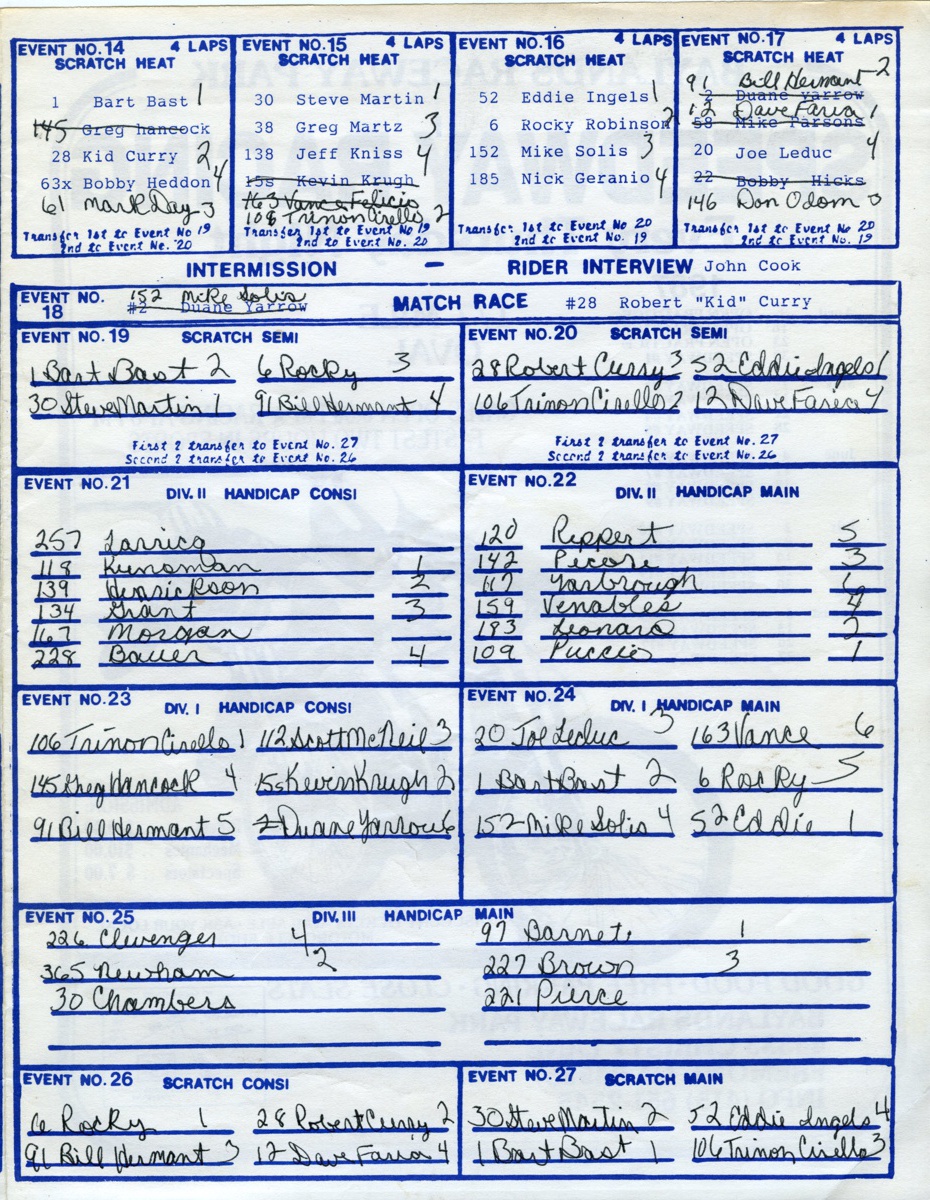 EVENT NO.14 4 LAPS
SCRATCH HEAT
1 Bart Bast 1
145 Greg hancock
28 Kid Curry 2
63x Bobby Heddon 4
61 Mark Day 3
Transfer 1st to Event No 19
2nd to Event No. 20
EVENT NO.15 4 LAPS
SCRATCH HEAT
30 Steve Martin 1
38 Greg Martz 3
138 Jeff Kniss 4
15s Kevin Krugh
163 Vance Felicio
106 Trinon Cirello 2
Transfer 1st to Event No 19
2nd to Event No. 20
EVENT NO.16 4 LAPS
SCRATCH HEAT
52 Eddie Ingels 1
6 Rocky Robinson 2
152 Mike Solis 3
185 Nick Geranio 4
Transfer 1st to Event No 20
2nd to Event No. 19
EVENT NO.17 4 LAPS
SCRATCH HEAT
91 Bill Hermant 2
2 Duane yarrow
12 Dave Faria 1
58 Mike Parsons
20 Joe Leduc 4
22 Bobby Hicks
146 Don Odom 3
Transfer 1st to Event No 20
2nd to Event No. 19
INTERMISSION - RIDER INTERVIEW John Cook
152 Mike Solis
EVENT NO. 18 #2 Duane Yarrow MATCH RACE #28 Robert "Kid" Curry
EVENT NO.19 SCRATCH SEMI
1 Bart Bast 2 6 Rocky 3
30 Steve Martin 1 91 Bill Hermant 4
First 2 transfer to Event No. 27
Second 2 transfer to Event No. 26
EVENT NO.20 SCRATCH SEMI
28 Robert Curry 3 52 Eddie Ingels 1
106 Trinon Cirello 2 12 Dave Faria 4
First 2 transfer to Event No. 27
Second 2 transfer to Event No. 26
EVENT NO.21
DIV. II HANDICAP CONSI
257 Larrico
118 Kunsman 1
139 Hendrickson 2
134 Grant 3
167 Morgan
228 Bauer 4
EVENT NO.22
DIV. II HANDICAP MAIN
120 Reppert 5
142 Pecore 3
117 Yarbrough 6
159 Venables 4
193 Leonard 2
109 Puccio 1
EVENT NO.23
DIV. I HANDICAP CONSI
106 Trinon Cirello 1 112 Scott McNeil 3
145 Greg Hancock 4 15s Kevin Krugh 2
91 Bill Hermant 5 2 Duane Yarrow 6
EVENT NO.24
DIV. I HANDICAP MAIN
20 Joe Leduc 3 163 Vance 6
1 Bart Bast 2 6 Rocky 5
152 Mike Solis 4 52 Eddie 1
EVENT NO.25 DIV. III HANDICAP MAIN
226 Clevenger 4 97 Barnett 1
365 Newham 2 227 Brown 3
30 Chambers 221 Pierce
EVENT NO.26 SCRATCH CONSI
6 Rocky 1 28 Robert Curry 2
91 Bill Hermant 3 12 Dave Faria 4
EVENT NO.27 SCRATCH MAIN
30 Steve Martin 2 52 Eddie Ingels 4
1 Bart Bast 1 106 Trinon Cirello 3